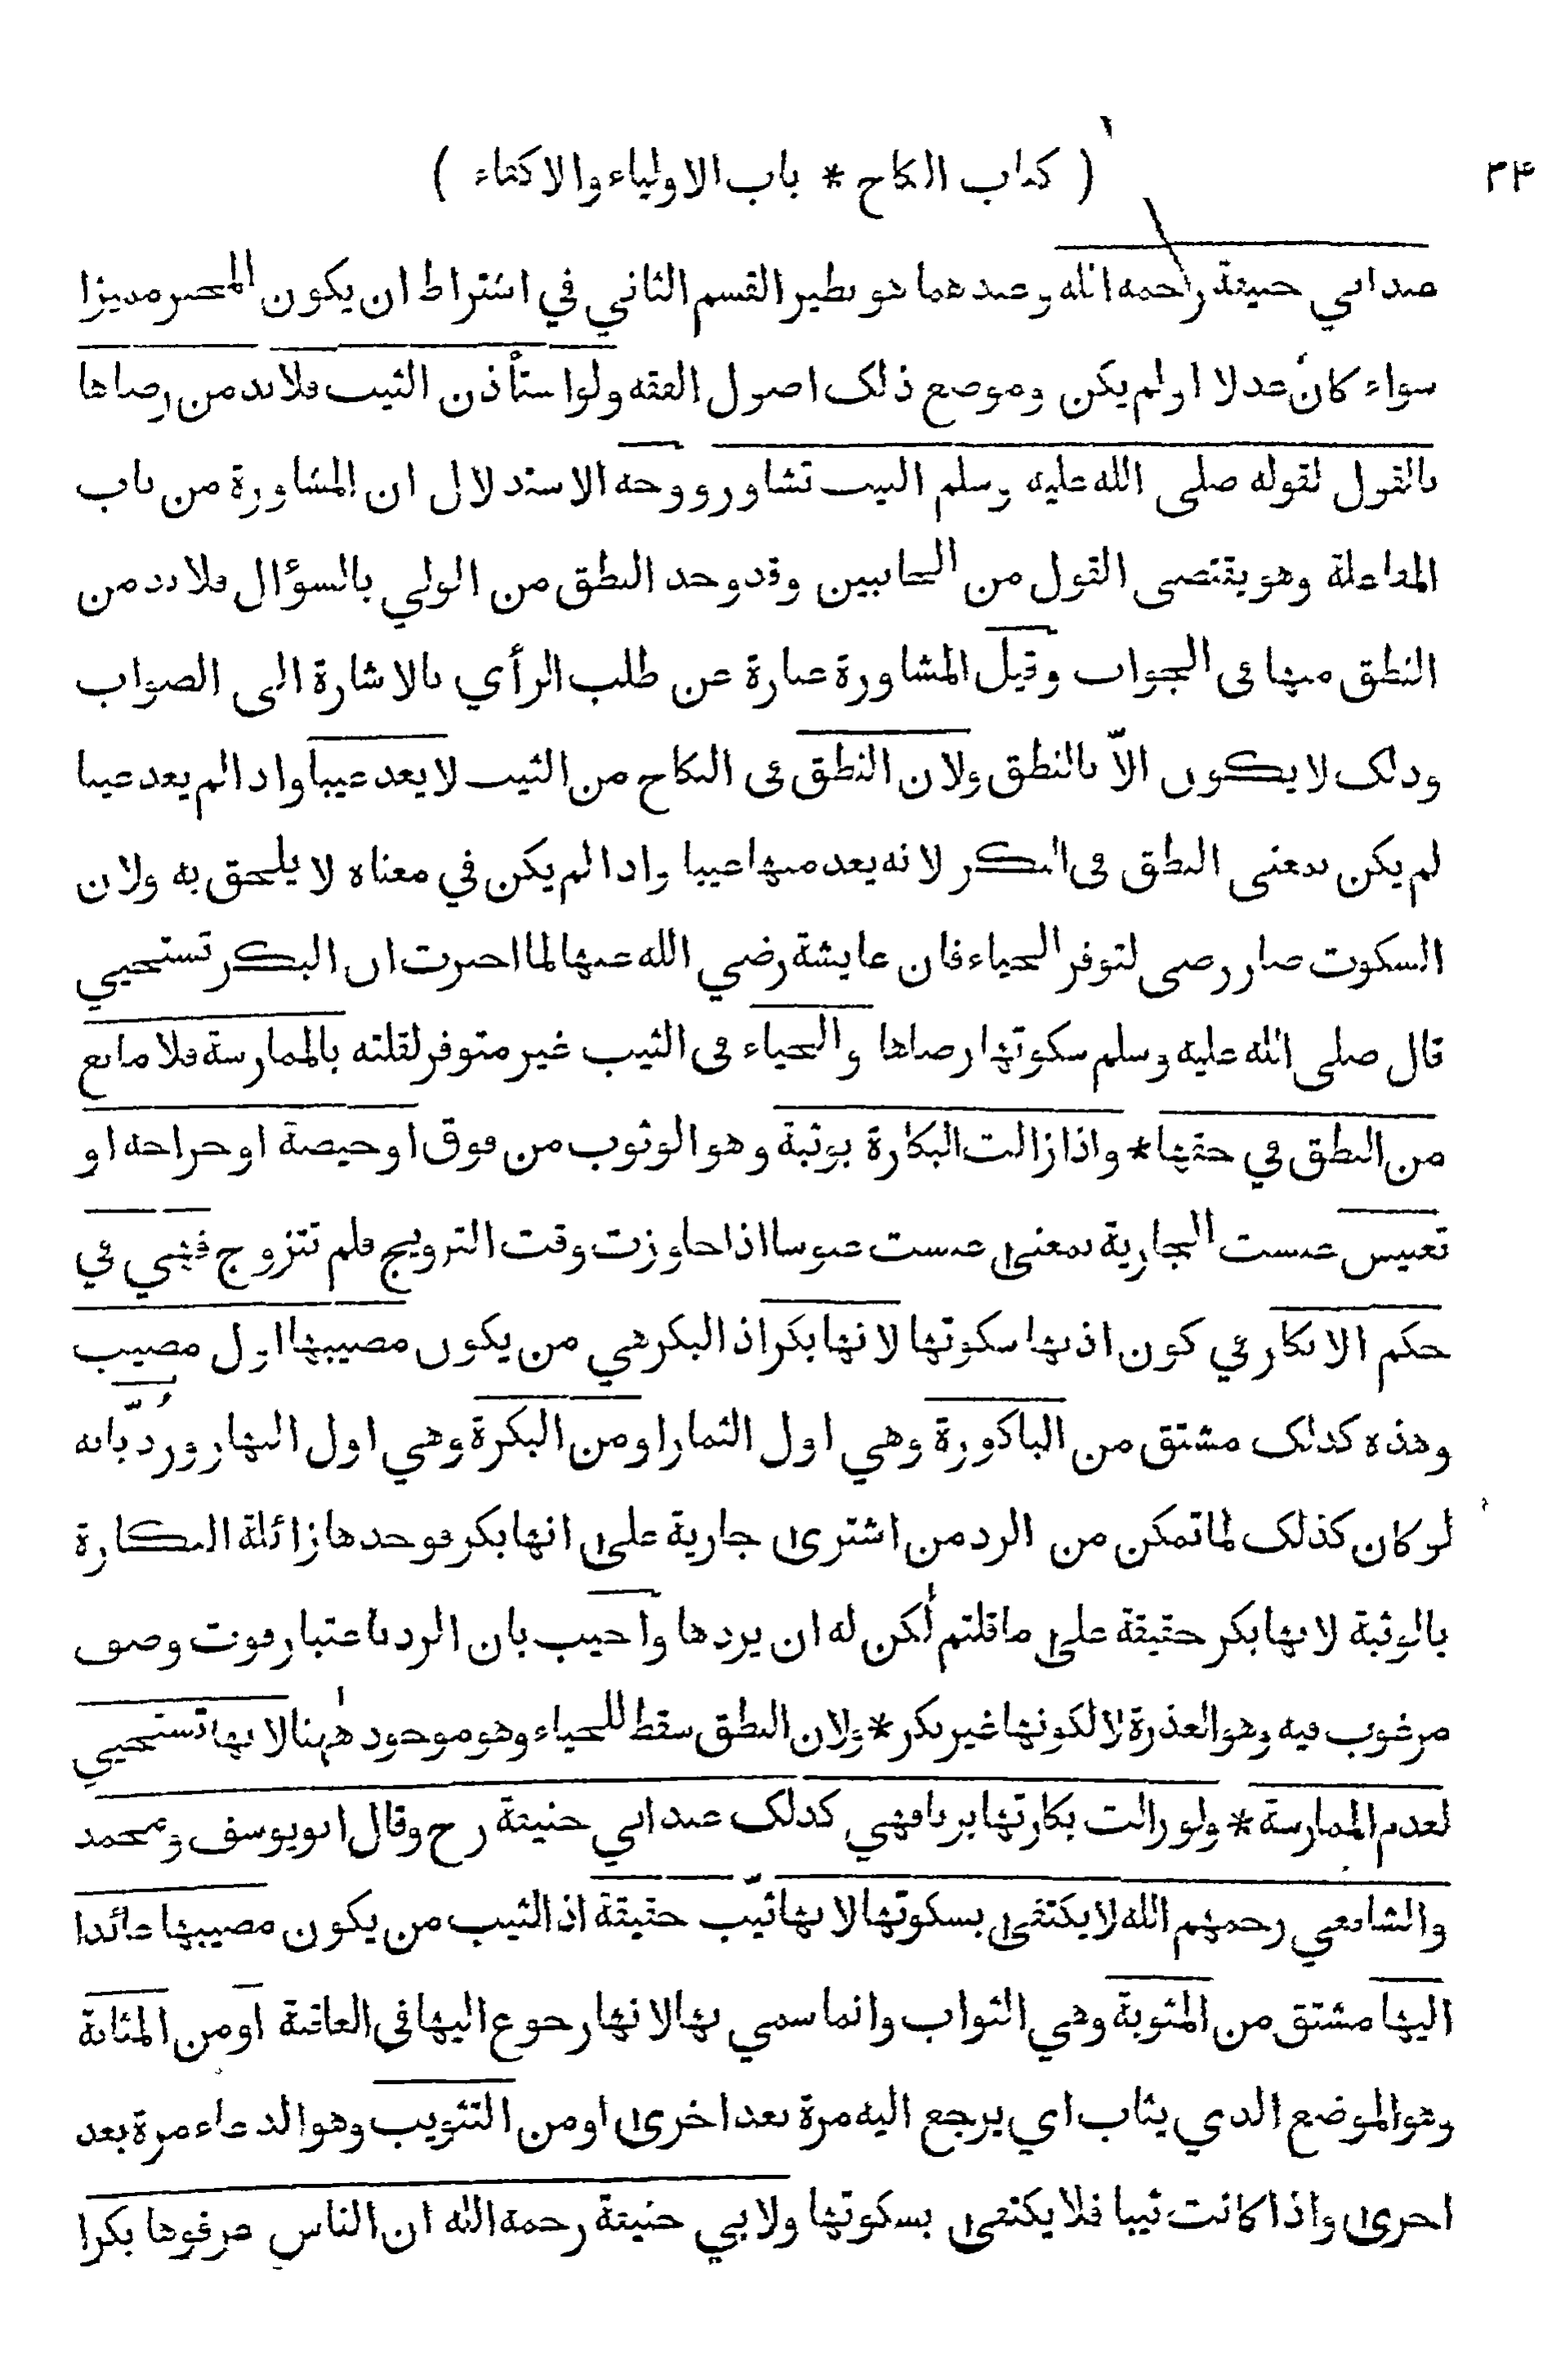 ۳۴ ( كتاب النكاح * باب الاولياء والاكفاء )
عند ابي حنيفة رحمه الله وعندهما هو نظير القسم الثاني في اشتراط ان يكون المخبر مميزا
سواء كان عدلا او لم يكن وموضع ذلك اصول الفقه ولو استأذن الثيب فلابد من رضاها
بالقول لقوله صلى الله عليه وسلم الثيب تشاور ووجه الاستدلال ان المشاورة من باب
المفاعلة وهو يقتضي القول من الجانبين وقد وجد النطق من الولي بالسؤال فلابد من
النطق منها في الجواب وقيل المشاورة عبارة عن طلب الرأي بالاشارة الى الصواب
وذلك لا يكون الّا بالنطق ولان النطق في النكاح من الثيب لا يعد عيبا واذا لم يعد عيبا
لم يكن بمعنى النطق في البكر لانه يعد منها عيبا واذا لم يكن في معناه لا يلحق به ولان
السكوت صار رضى لتوفر الحياء فان عايشة رضي الله عنها لما اخبرت ان البكر تستحيي
قال صلى الله عليه وسلم سكوتها رضاها والحياء في الثيب غير متوفر لقلته بالممارسة فلا مانع
من النطق في حقها * واذا زالت البكارة بوثبة وهو الوثوب من فوق او حيضة او جراحة او
تعنيس عنست الجارية بمعنى عنست عنوسا اذا جاوزت وقت التزويج فلم تتزوج فهي في
حكم الابكار في كون اذنها سكوتها لانها بكر اذ البكر هي من يكون مصيبها اول مصيب
وهذه كذلك مشتق من الباكورة وهي اول الثمار او من البكرة وهي اول النهار ورُدّ بانه
لو كان كذلك لما تمكن من الرد من اشترى جارية على انها بكر فوجدها زائلة البكارة
بالوثبة لانها بكر حقيقة على ما قلتم لكن له ان يردها واجيب بان الرد باعتبار فوت وصف
مرغوب فيه وهو العذرة لا لكونها غير بكر * ولان النطق سقط للحياء وهو موجود ههنا لانها تستحيي
لعدم الممارسة * ولو زالت بكارتها بزنا فهي كذلك عند ابي حنيفة رح وقال ابو يوسف ومحمد
والشافعي رحمهم الله لا يكتفى بسكوتها لانها ثيّب حقيقة اذ الثيب من يكون مصيبها عائدا
اليها مشتق من المثوبة وهي الثواب وانما سمي بها لانها رجوع اليها في العاقبة او من المثابة
وهو الموضع الذي يثاب اي يرجع اليه مرة بعد اخرى او من التثويب وهو الدعاء مرة بعد
اخرى واذا كانت ثيبا فلا يكتفى بسكوتها ولابي حنيفة رحمه الله ان الناس عرفوها بكرا